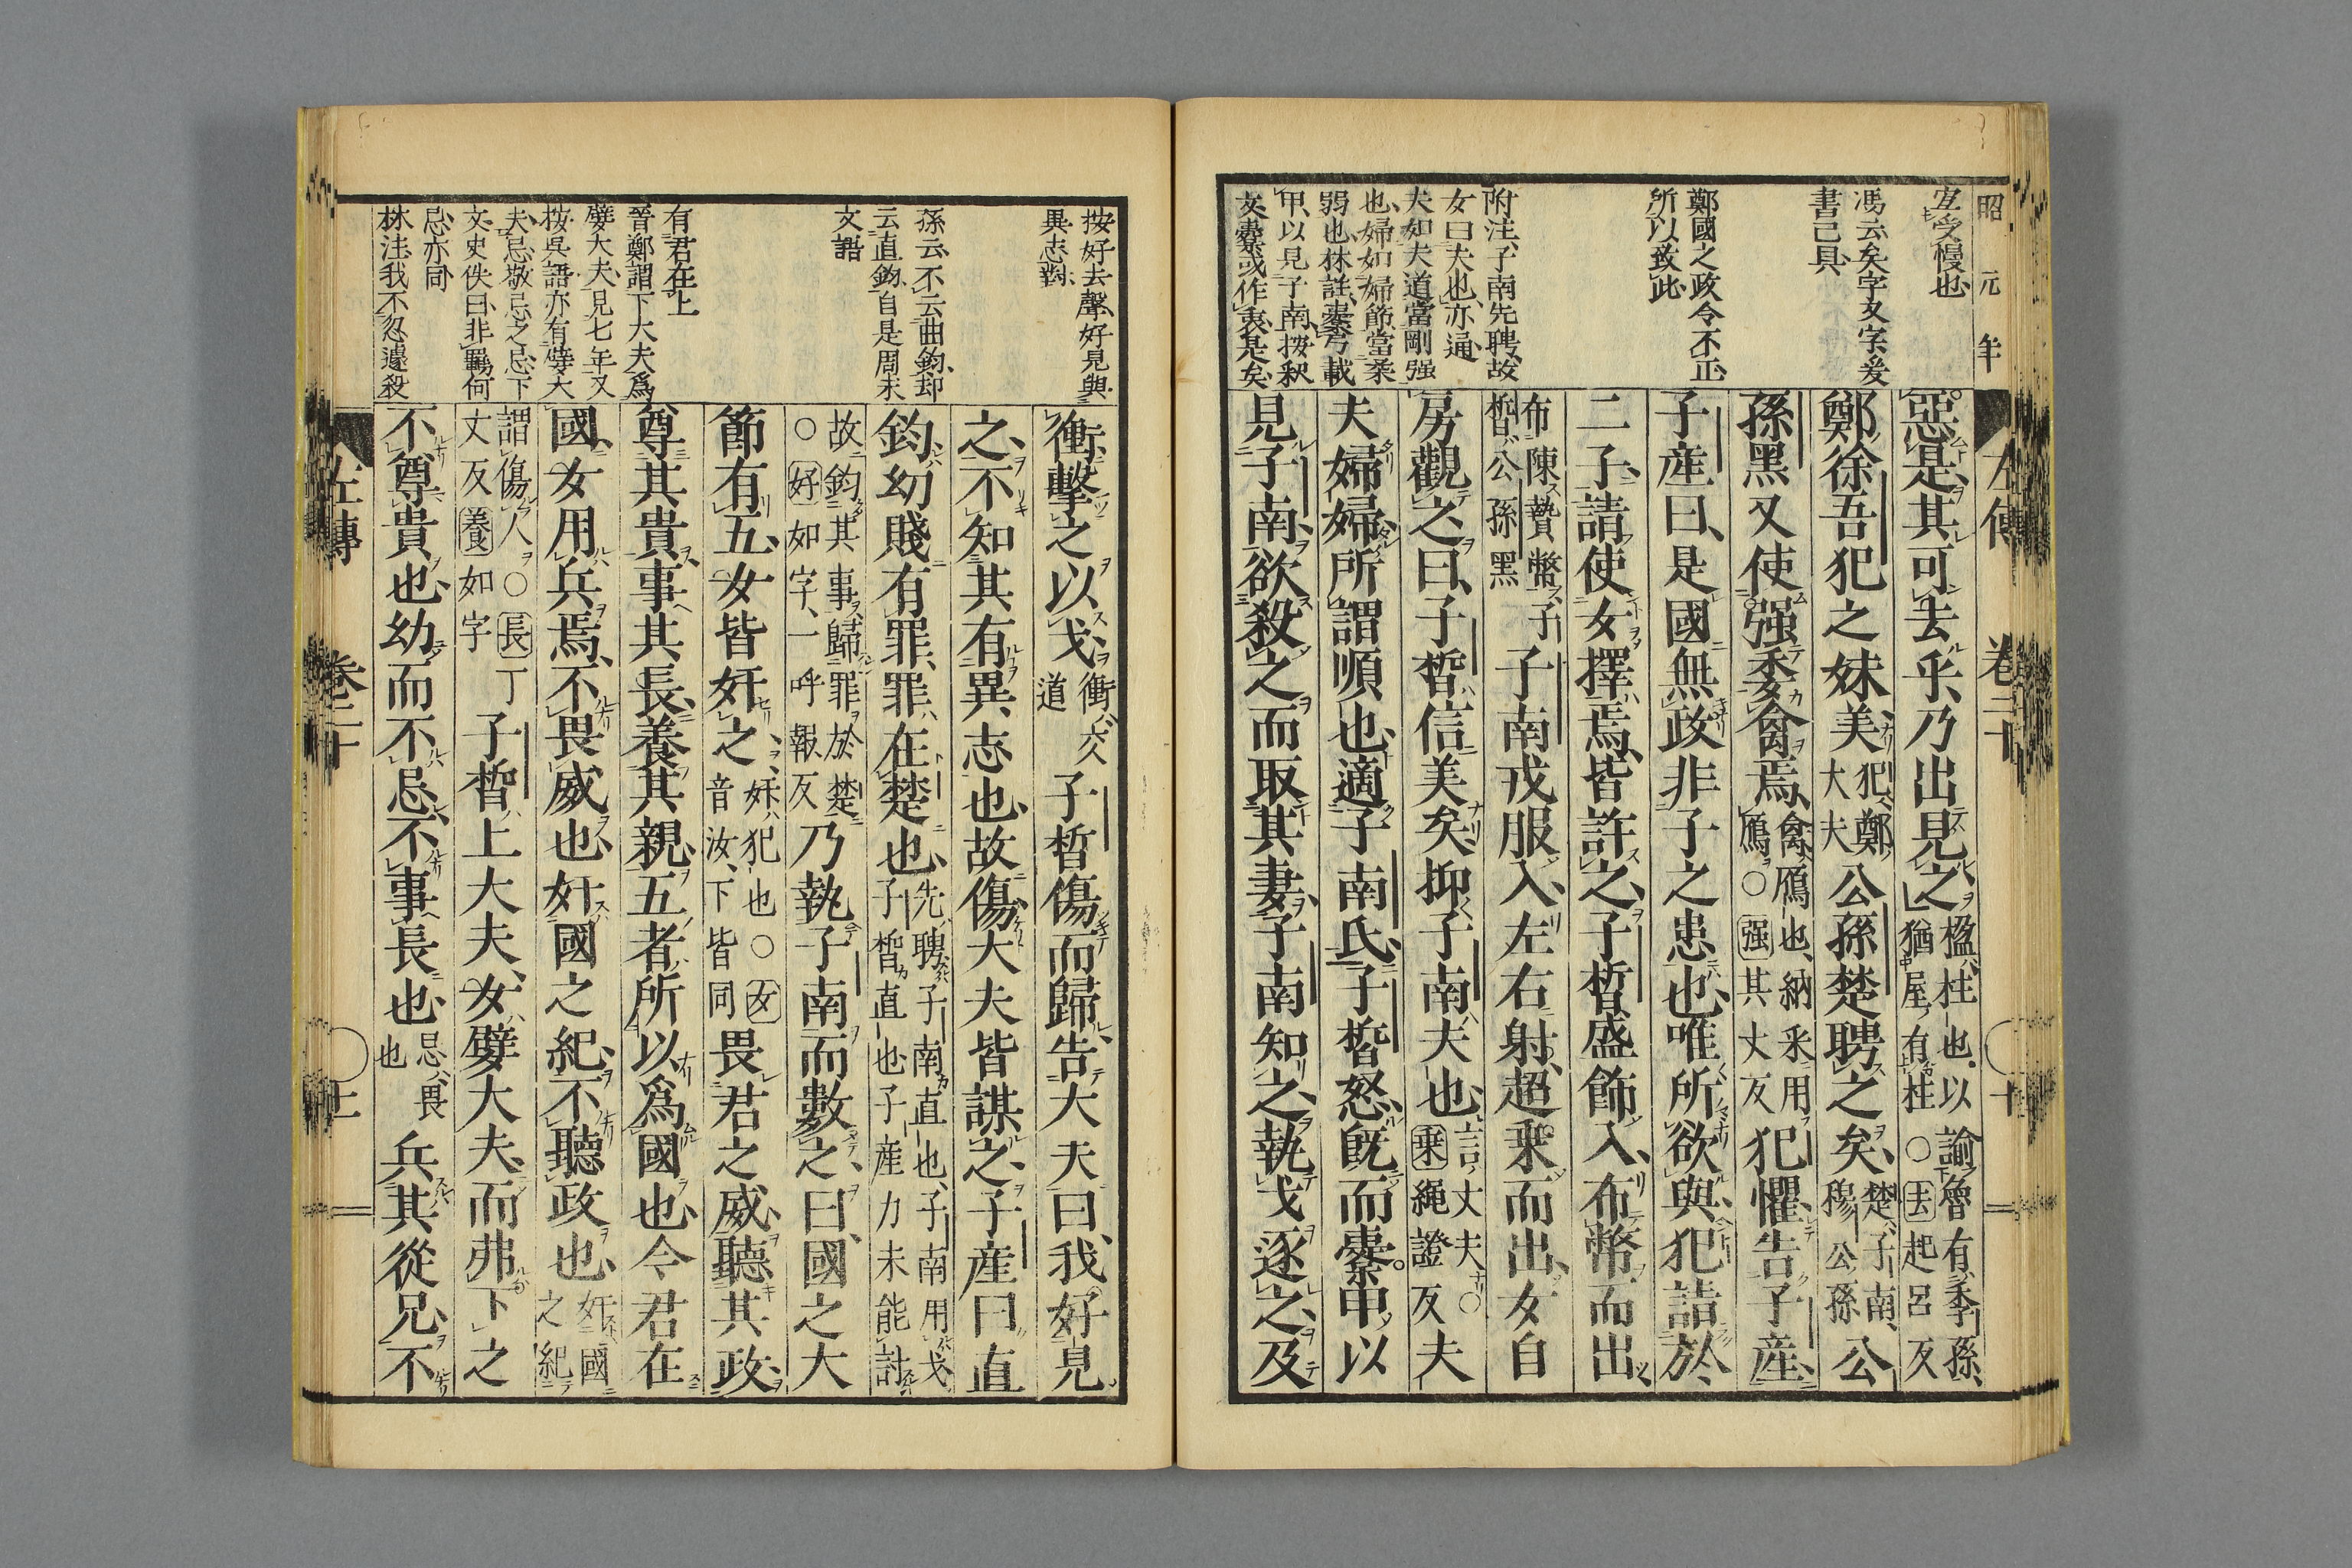 昭元年
左傳 卷二十 十
宜受慢也
馮云矣字文字爰
書已具
鄭國之政令不正
所以致此
附注子南先聘故
女曰夫也亦通
夫如夫道當剛强
也婦如婦節當柔
弱也林註櫜弓載
甲以見子南按釈
文櫜或作衷是矣
惡是其可去乎乃出見之楹柱也以諭魯有季孫
猶屋有柱○去起呂反
鄭徐吾犯之妹美犯鄭
大夫公孫楚聘之矣楚子南
穆公孫公
孫黑又使强委禽焉禽鴈也納采用
鴈○强其丈反犯懼告子產
子產曰是國無政非子之患也唯所欲與犯請於
二子請使女擇焉皆許之子晳盛飾入布幣而出
布陳贄幣子
晳公孫黑子南戎服入左右射超乘而出女自
房觀之曰子晳信美矣抑子南夫也言丈夫○
乘繩證反夫
夫婦婦所謂順也適子南氏子晳怒既而櫜甲以
見子南欲殺之而取其妻子南知之執戈逐之及
按好去聲好見與
異志對
孫云不云曲鈞却
云直鈞自是周末
文語
有君在上
晉鄭謂下大夫爲
嬖大夫見七年又
按吳語亦有嬖大
夫忌敬忌之忌下
文史佚曰非羈何
忌亦同
林注我不忍遽殺
衝擊之以戈衝交
道子晳傷而歸告大夫曰我好見
之不知其有異志也故傷大夫皆謀之子產曰直
鈞幼賤有罪罪在楚也先聘子南直也子南用戈
子晳直也子產力未能討
故鈞其事歸罪於楚
○好如字一呼報反乃執子南而數之曰國之大
節有五女皆奸之奸犯也○女
音汝下皆同畏君之威聽其政
尊其貴事其長養其親五者所以爲國也今君在
國女用兵焉不畏威也奸國之紀不聽政也奸國
之紀
謂傷人○長丁
丈反養如字子晳上大夫女嬖大夫而弗下之
不尊貴也幼而不忌不事長也忌畏
也兵其從兄不
左傳 卷二十 十一